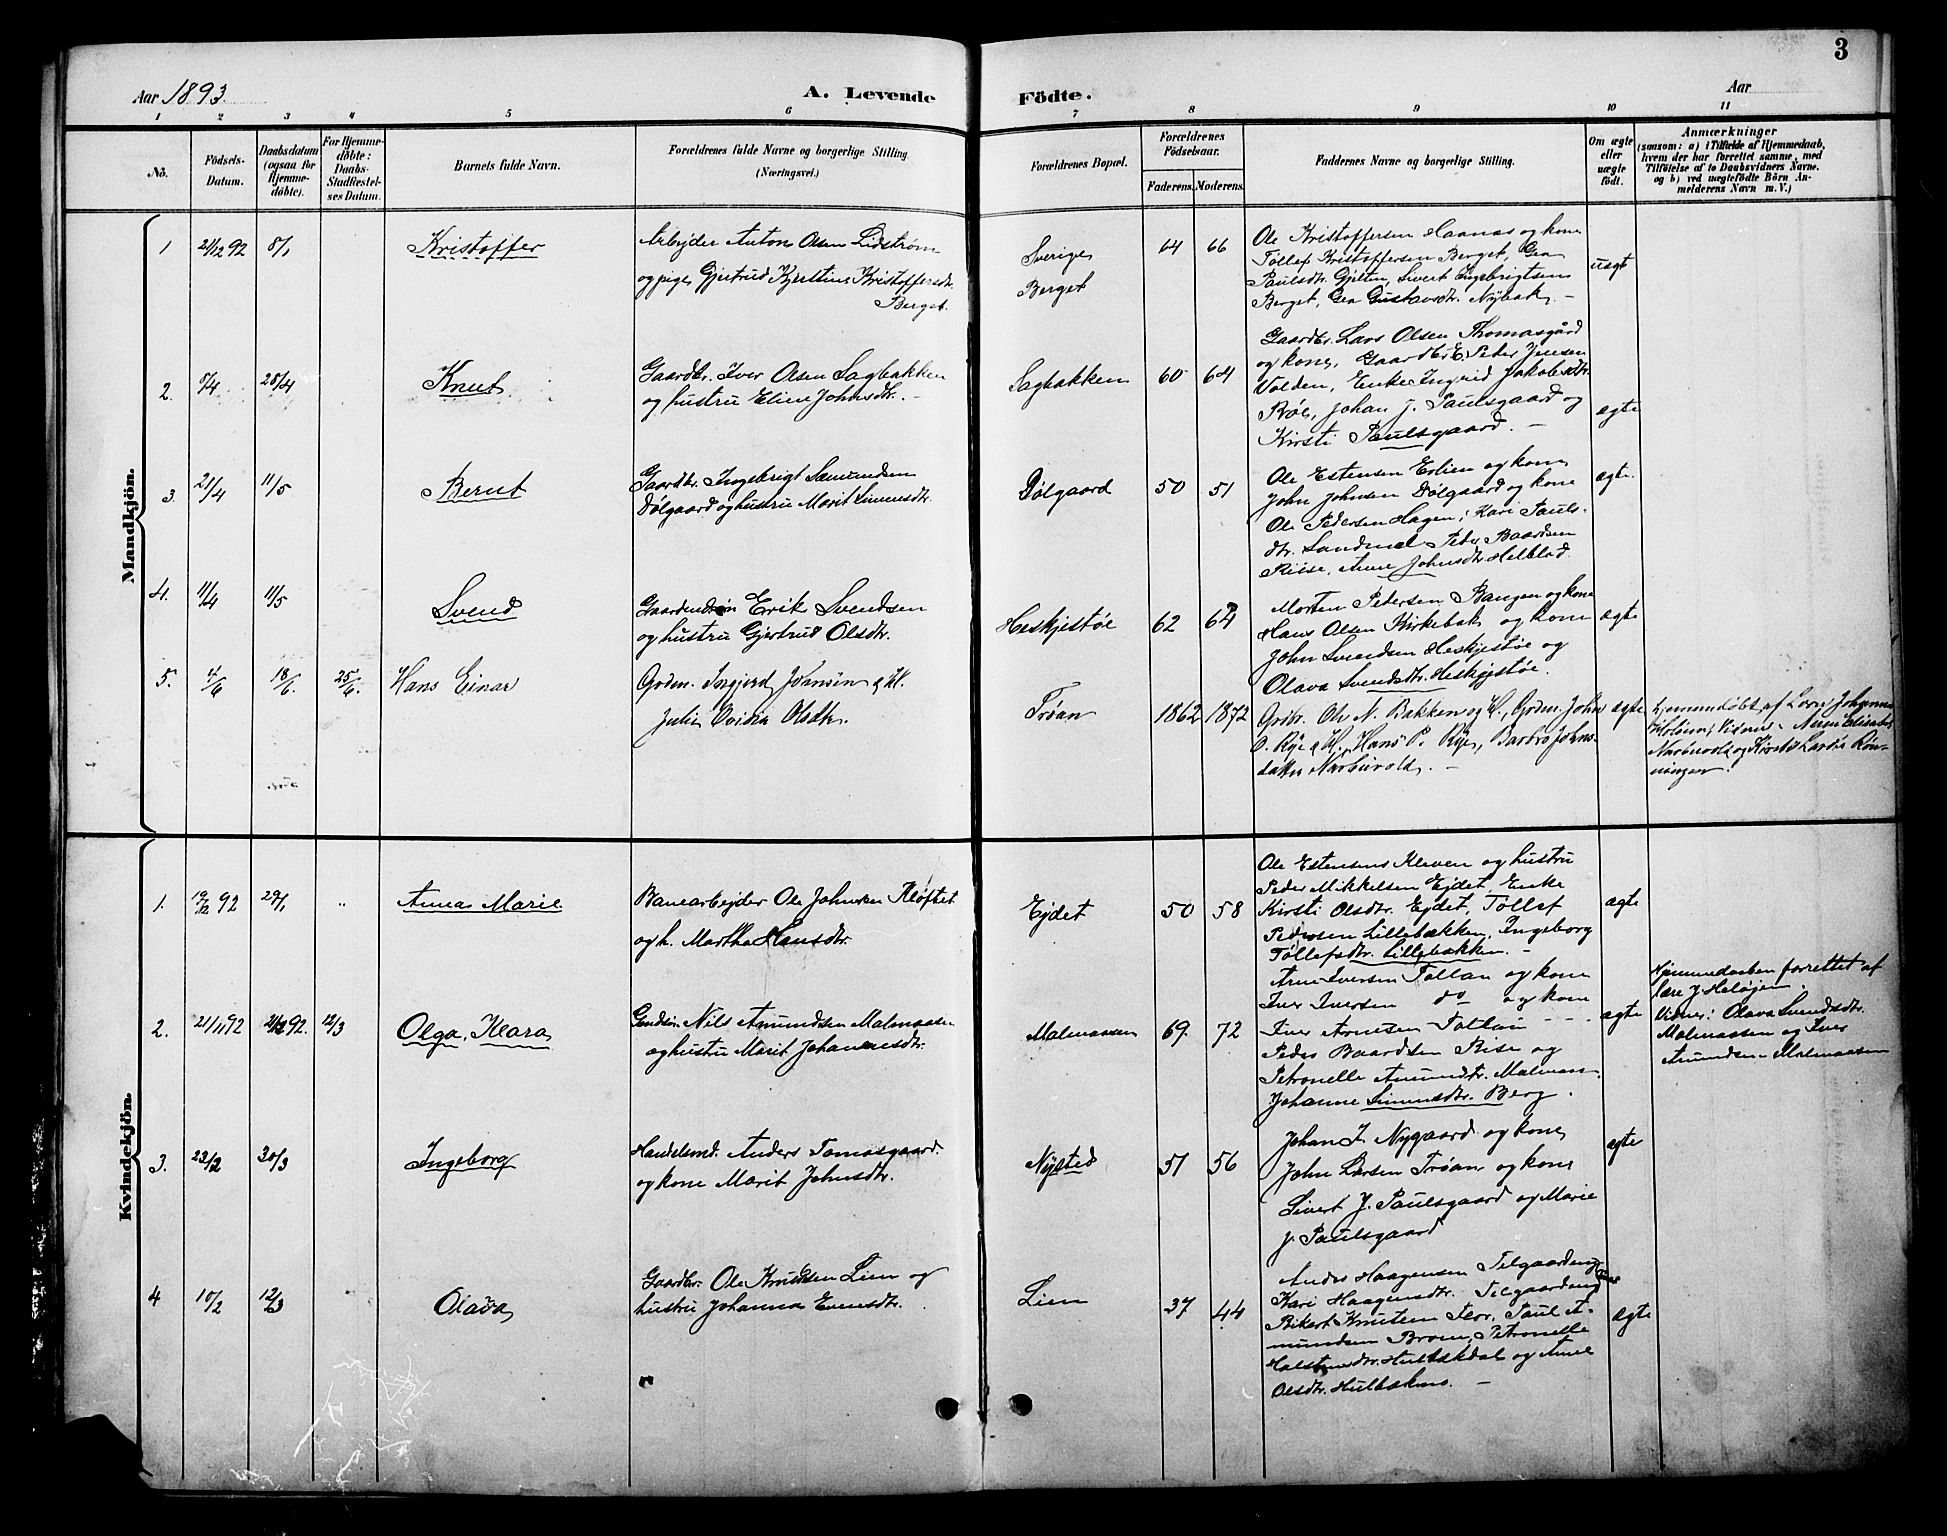 3
Aar 1893. A. Levende Födte. Aar
1 2 3 4 5 6 7 8 9 10 11
No.
Födsels-
Datum.
Daabsdatum
(ogsaa for
Hjemme-
döbte).
For Hjemme-
döbte:
Daabs-
Stadfæstel-
ses Datum.
Barnets fulde Navn.
Forældrenes fulde Navne og borgerlige Stilling
(Næringsvei.)
Forældrenes Bopæl.
Forældrenes
Födselsaar.
Faderens. Moderens.
Faddernes Navne og borgerlige Stilling.
Om ægte
eller
uægte
födt.
Anmærkninger
(saasom: a) i Tilfælde af Hjemmedaab,
hvem der har forrettet samme, med
Tilföielse af to Daabsvidners Navne.
og b) ved uægtefödte Börn An-
melderens Navn m. V.)
Mandkjön.
1 21/12 92 8/1 Kristoffer
Arbejder Anton Olsen Lidstrøm
og pige Gjertrud Kjerstine Kristoffersdtr.
Berget.
Sverige
Berget
64 66
Ole Kristoffersen Haanas og kone
Tollef Kristoffersen Berget, Gea
Paulsdtr. Gjelten, Sivert Ingebrigtsen
Berget, Gea Gustavsdtr. Nybak. –
uægt
2. 5/4 28/4 Knut
Gaardbr. Iver Olsen Sagbakken
og hustru Eline Johnsdtr. –
Sagbakken
60 64
Gaardbr. Lars Olsen Thomasgård
og kone, Gaardbr. Peder Jensen
Volden, Enke Ingrid Jakobsdtr.
Røe, Johan J. Paulsgaard og
Kirsti Paulsgaard. –
ægte
3. 21/4 11/5 Bernt
Gaardbr. Ingebrigt Samundsen
Dølgaard og hustru Marit Simensdtr.
Dølgaard
50 51
Ole Estensen Erlien og kone
John Johnsen Dølgaard og kone
Ole Pedersen Hagen, Kari Pauls-
dtr. Sandmel Peder Baardsen
Riise, Anne Johnsdtr. Helblad.
ægte.
4. 11/4 11/5 Svend
Erik Svendsen
og hustru Gjertrud Olsdtr.
Heskjestøe
62 64
Morten Pedersen Bangen og kone
Hans Olsen Kirkebak og kone
John Svendsen Heskjestøe og
Olava Svendsdtr. Heskjestøe.
ægte
5. 4/6 18/6. 25/6. Hans Einar
Grdm. Ingjerd Johnsen & H.
Julie Ovidia Olsdtr.
Trøan
1862 1872
Grdbr. Ole N. Bakken og H., Grdm. John
O. Rye & H., Hans P. Rye, Barbro Johns-
datter Narbuvold. –
ægte
Hjemmedøbt af Lærer Johannes
Holien; Vidner: Anne Elisabet
Narbuvold og Kirstie Røn-
ningen.
Kvindekjön.
1. 19/12 92 29/1 " Annas Marie
Banearbejder Ole Johnsen Kløftet
og h. Martha Hansdtr.
Ejdet
50 58
Ole Estensens Kleven og hustru
Peder Mikkelsen Ejdet, Enke
Kirsti Olsdtr. Ejdet, Tollef
Pedersen Lillebækken, Ingeborg
Tøllefsdtr. Lillebækken. –
ægte
2. 21/11 92 2/12 92. 12/3 Olga, Klara
Nils Amundsen Malmaasen
og hustru Marit Johannesdtr.
Malmaasen
69. 72
Arne Iversen Tollan og kone
Iver Iversen do og kone
Iver Arnesen Tollan
Peder Baardsen Rise og
Petronelle Amundtr. Malmaas.
Johanne Simensdtr. Berg.
ægte
Hjemmedaaben forrettet af
lære J Heløjen.
Vidner: Olava Svendsdtr.
Malmaasen og Iver
Amundsen Malmaasen
3. 23/2 30/3 Ingeborg
Handelsmd. Anders Tomasgaard.
og kone Marit Johnsdtr.
Nysted
51 56
Johan J. Nygaard og kone
John Larsen Trøan og kone
Sivert J. Paulsgaard og Marie
J. Paulsgaard
ægte
4 10/2 12/3 Olava
Gaardbr. Ole Knudsen Lien og
hustru Johanna Evensdtr.
Lien
37 44
Anders Haagensen Telgaardeng
Kari Haagensdtr. Telgaardeng
Bikert Knutsen Floor, Paul A-
mundsen Broen, Petronelle
Hulbækdal og Anne
Olsdtr. Hulbækmo. –
ægte